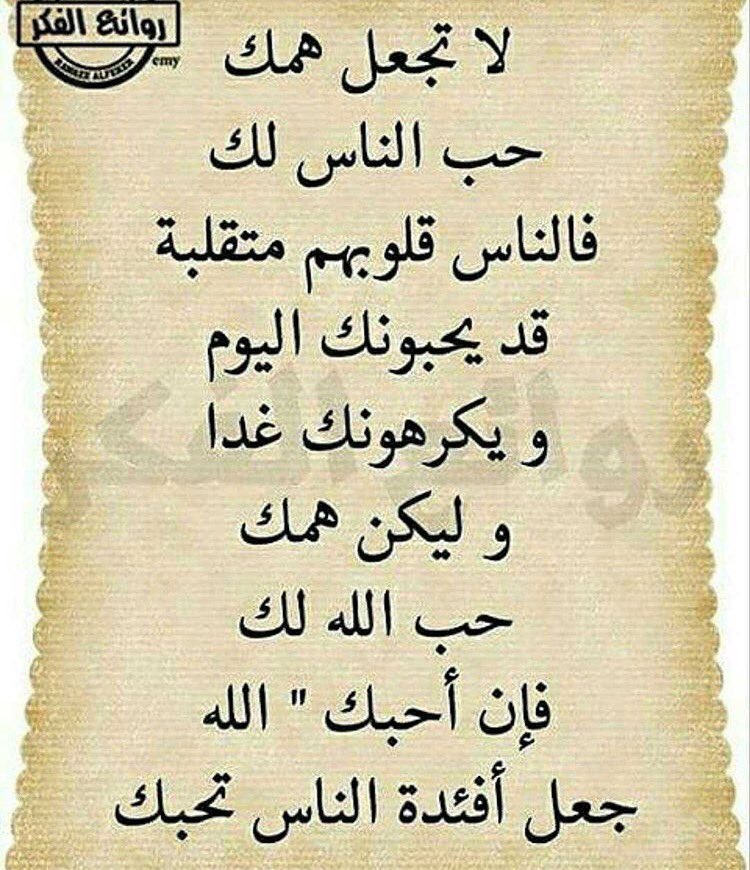 روائع الفكر
RAWAEE ALFEKER
emy
لا تجعل همك
حب الناس لك
فالناس قلوبهم متقلبة
قد يحبونك اليوم
و يكرهونك غدا
و ليكن همك
حب الله لك
فإن أحبك " الله
جعل أفئدة الناس تحبك
روائع الفكر